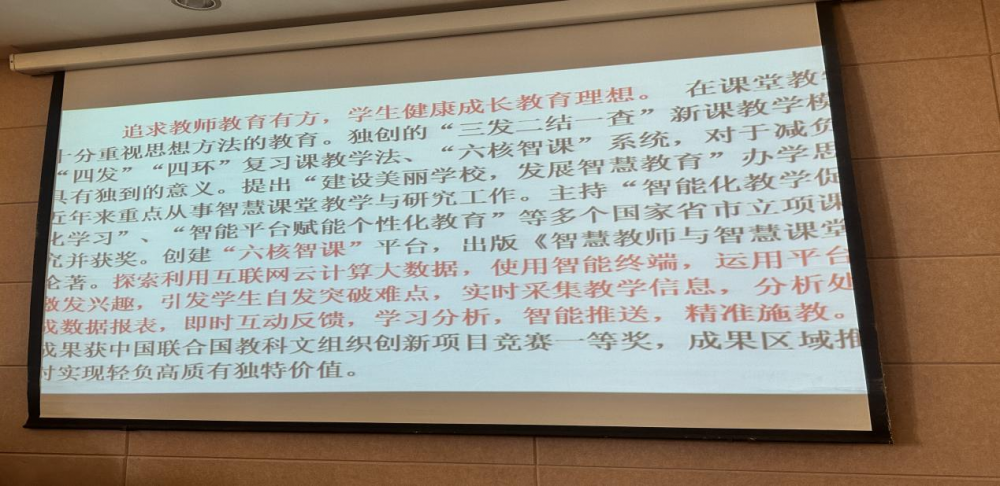 追求教师教育有方，学生健康成长教育理想。 在课堂教学
十分重视思想方法的教育。独创的“三发二结一查”新课教学模
“四发”“四环”复习课教学法、“六核智课”系统，对于减负
具有独到的意义。提出“建设美丽学校，发展智慧教育”办学思
近年来重点从事智慧课堂教学与研究工作。主持“智能化教学促
化学习”、“智能平台赋能个性化教育”等多个国家省市立项课
究并获奖。创建“六核智课”平台，出版《智慧教师与智慧课堂
论著。探索利用互联网云计算大数据，使用智能终端，运用平台
激发兴趣，引发学生自发突破难点，实时采集教学信息，分析处
成数据报表，即时互动反馈，学习分析，智能推送，精准施教。
成果获中国联合国教科文组织创新项目竞赛一等奖，成果区域推
对实现轻负高质有独特价值。